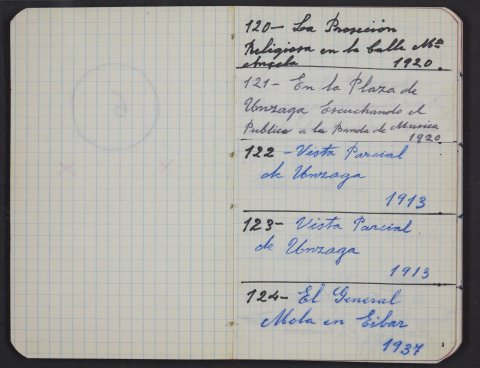 120- La Prosecion
Religiosa en la Calle Mª
Angela 1920.
121- En la Plaza de
Unzaga Escuchando el
Publico a la Banda de Musica
1920.
122 - Vista Parcial
de Unzaga
1913
123- Vista Parcial
de Unzaga
1913
124- El General
Mola en Eibar
1937